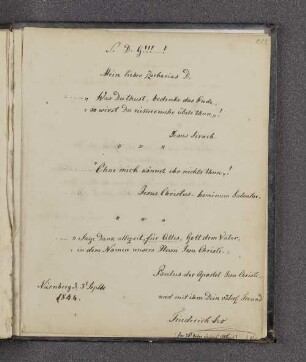 S. D. G!!! !
Mein lieber Zacharias D.
„Was Du thust, bedenke das Ende,
so wirst Du nimmermehr übels thun,„!
Jesus Sirach.
" " "
„Ohne mich könnt ihr nichts thun„!
Jesus Christus
" " "
„Sage Dank allezeit für Alles, Gott dem Vater,
in dem Namen unsers Herrn Jesu Christi.
Paulus der Apostel Jesu Christi.
Nürnberg d. 3t Septbr
1844.
und mit ihm Dein Freund
Friederich